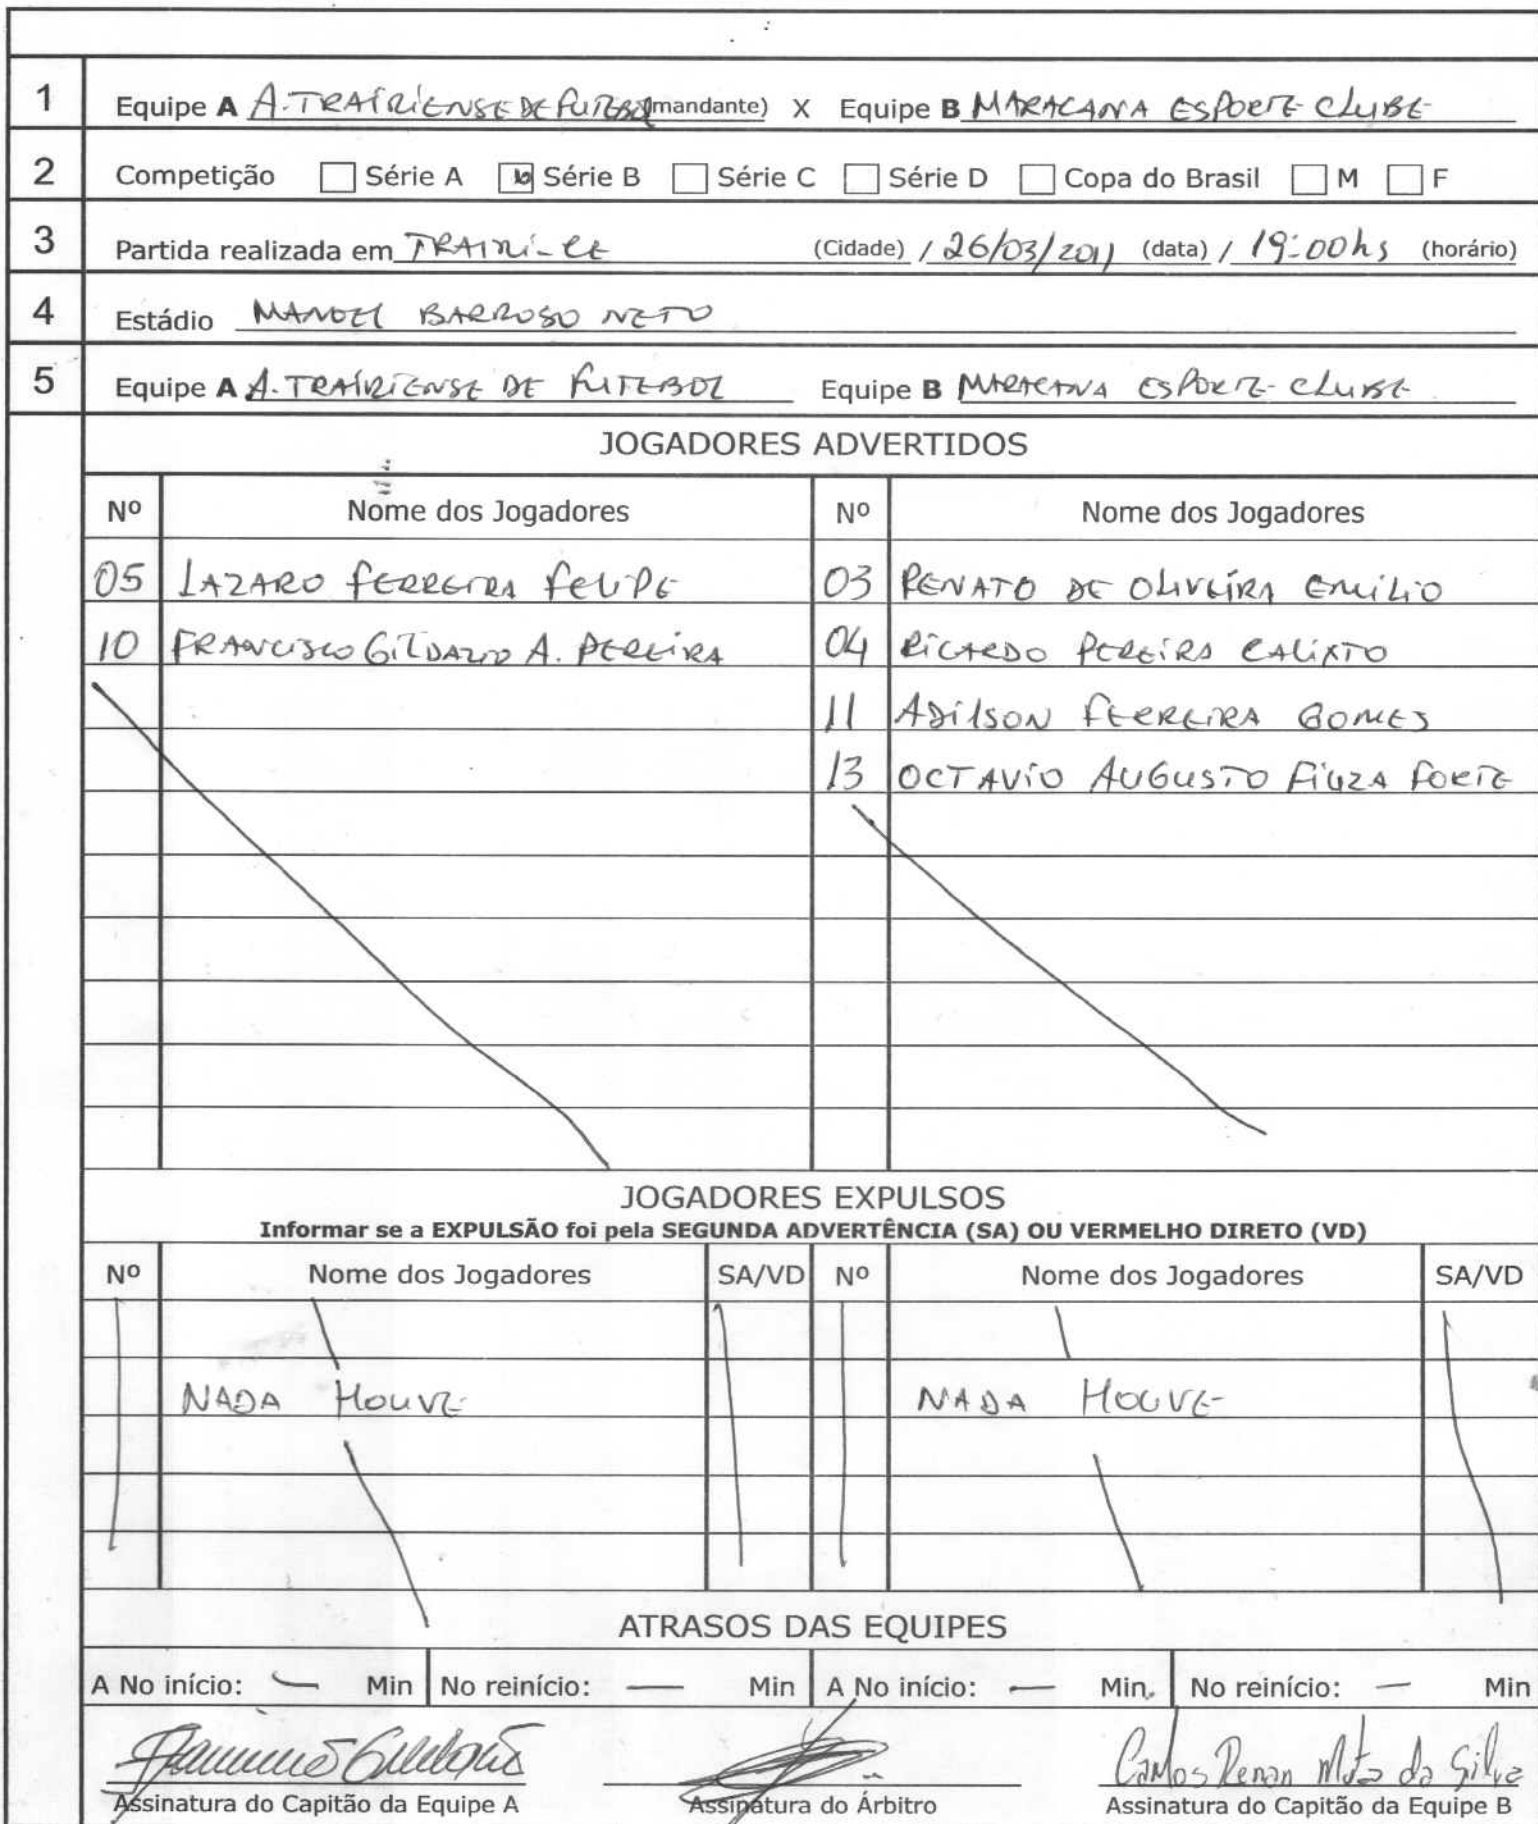 1 Equipe A A. TRAÍRIENSE DE FUTEBOL (mandante) X Equipe B MARACANA ESPORTE CLUBE
2 Competição Série A Série B Série C Série D Copa do Brasil M F
3 Partida realizada em TRAIRÍ-CE (Cidade) / 26/03/2011 (data) / 19:00hs (horário)
4 Estádio MANOEL BARROSO NETO
5 Equipe A A. TRAÍRIENSE DE FUTEBOL Equipe B MARACANA ESPORTE CLUBE
JOGADORES ADVERTIDOS
Nº Nome dos Jogadores Nº Nome dos Jogadores
05 LAZARO FERREIRA FELIPE 03 RENATO DE OLIVEIRA EMILIO
10 FRANCISCO GILDAZIO A. PEREIRA 04 RICARDO PEREIRA CALIXTO
11 ADILSON FERREIRA GOMES
13 OCTAVIO AUGUSTO FIUZA FORTE
JOGADORES EXPULSOS
Informar se a EXPULSÃO foi pela SEGUNDA ADVERTÊNCIA (SA) OU VERMELHO DIRETO (VD)
Nº Nome dos Jogadores SA/VD Nº Nome dos Jogadores SA/VD
NADA HOUVE NADA HOUVE
ATRASOS DAS EQUIPES
A No início: — Min No reinício: — Min A No início: — Min. No reinício: — Min
Carlos Renan Mota da Silva
Assinatura do Capitão da Equipe A Assinatura do Árbitro Assinatura do Capitão da Equipe B